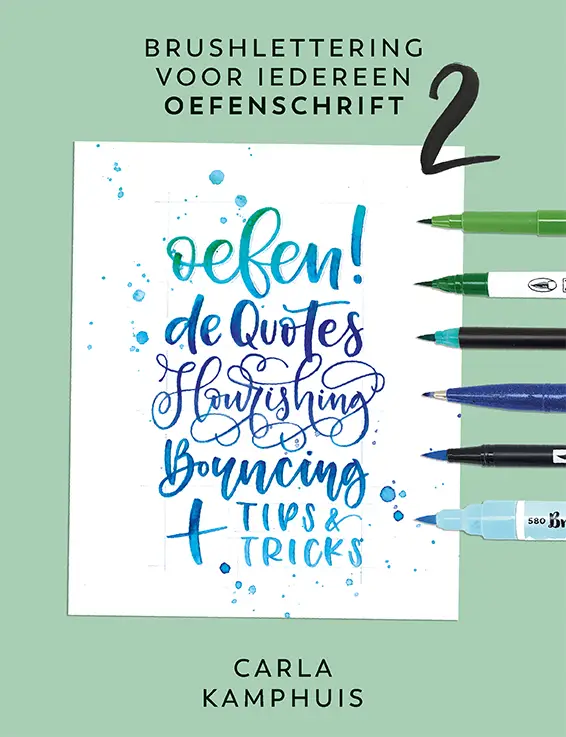 BRUSHLETTERING
VOOR IEDEREEN
OEFENSCHRIFT
2
oefen!
de Quotes
Flourishing
Bouncing
+ TIPS &
TRICKS
580 Br
CARLA
KAMPHUIS